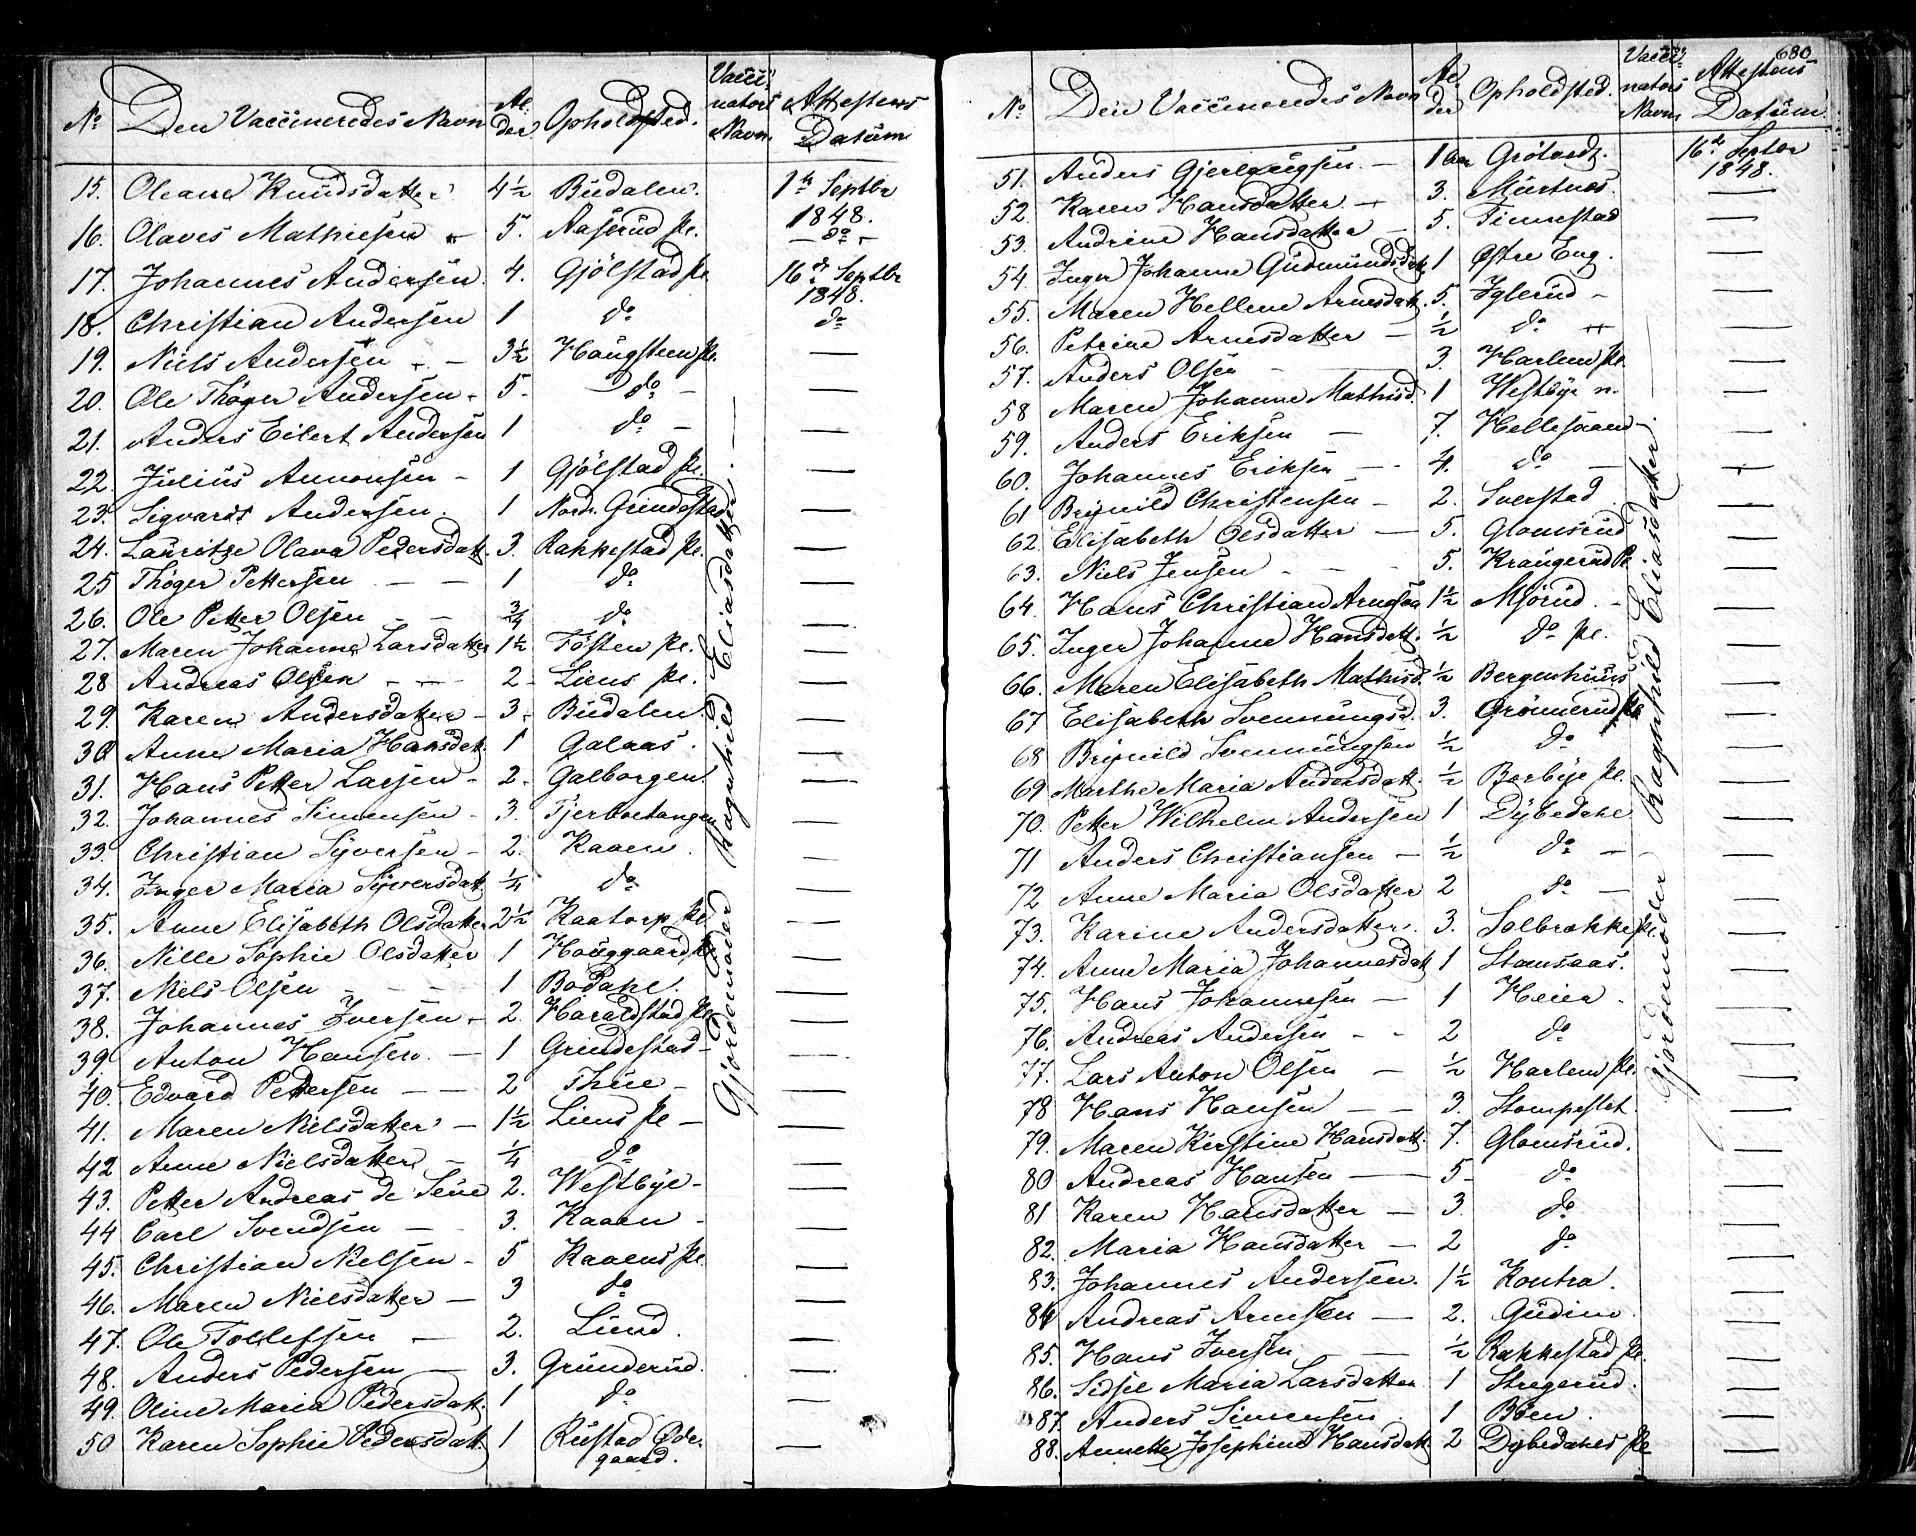 No Den Vaccineredes Navn Al- der Opholdsted. Vacci- nators Navn Attestens Datum
15. Oleane Knudsdatter 4½ Budalen. 1ste Septbr 1848.
16. Olaves Mathiesen 5. Aaserud Pl. — do —
17. Johannes Andersen 4. Gjölstad Pl. 16de Septbr 1848.
18. Christian Andersen 1 do do
19. Niels Andersen — 3½ Haugsteen Pl. —
20. Ole Thöger Andersen - 5. do —
21. Anders Eilert Andersen 1 do —
22. Julius Amonsen - 1 Gjölstad Pl. —
23. Sigvardt Andersen. 1 Nordr. Grimdestad —
24. Lauritze Olava Pedersdatt. 3. Rakkestad Pl. —
25 Thöger Pettersen — — 1 do —
26. Ole Petter Olsen — ¾ do —
27. Maren Johanne Larsdatter 1½ Tösten Pl. —
28 Andreas Olsen - — 2 Liens Pl. —
29. Karen Andersdatter - 3. Budalen. —
30 Anne Maria Hansdatt. 1 Galaas. —
31. Hans Petter Larsen - 2. Galborgen. —
32. Johannes Simensen - 3. Tjerboetangen —
33. Christian Syversen - 2. Kaaen. —
34. Inger Maria Syversdatt. ¼ do —
35. Anne Elisabeth Olsdatter 2½ Kaatorp Pl. —
36. Nille Sophie Olsdatter 1 Hauggaard Pl. —
37. Niels Olsen — 1 Bödahl. —
38. Johannes Iversen - 2. Haraldstad Pl. —
39. Anton Hansen. — 1 Grimdestad —
40. Edvard Pettersen — — 2 Thue - —
41. Maren Nielsdatter — 1½ Liens Pl — —
42 Anne Nielsdatter — ¼ do —
43. Petter Andreas de Seue 2. Westbye - —
44 Carl Svendsen — 3. Kaaen - —
45. Christian Nielsen - 5 Kaaens Pl. —
46. Maren Nielsdatter — 3 do —
47. Ole Tollefsen — 2. Lund. —
48. Anders Pedersen — 3. Gründerud. —
49. Oline Maria Pedersdatt. 1 do —
50 Karen Sophie Pedersdatt. 1 Rustad Öde- gaard. —
Gjordemoder Ragnhild Eliasdatter.
680
No Den Vaccineredes Navn Al- der Opholdsted. Vacci- nators Navn Attestens Datum
51. Anders — 1 Aar 16de Septbr 1848.
52. Karen Hansdatter — 3. —
53. Andrine Hansdatter — 5. Timestad —
54. Inger Johanne Gudmundsdatt. 1 Östre Eng. —
55. Maren Hellene Arnesdatt. 5. Yglerud - —
56. Petrine Arnesdatter — ½ do —
57. Anders Olsen — 3. Harlem Pl. —
58 Maren Johanne Mathisd. 1 Westbye n. —
59. Anders Eriksen — 7. Hellesaaen —
60. Johannes Eriksen — 4. do — —
61 Brynild Christensen - 2. Sverstad —
62. Elisabeth Olsdatter — 5. Glomsrud —
63. Niels Jensen - - 5. Krangerud Pl. —
64. Hans Christian Arnesen 1½ Mjörud —
65. Inger Johanne Hansdatt. ½ do Pl. —
66. Maren Elisabeth Mathisd. ½ Bergenhuus —
67 Elisabeth Svennungsd. 3. Grönnerud Pl. —
68 Brynild Svennungsen ½ do —
69 Marthe Maria Andersdatt. ½ Berbye Pl. —
70. Petter Wilhelm Andersen 1 Dybedahl —
71 Anders Christiansen — ½ do — —
72 Anne Maria Olsdatter 2 do — —
73. Karine Andersdatter. 3. Solbrække Pl. —
74. Anne Maria Johannesdatt 1 Stomsaas. —
75. Hans Johannesen — 1 Heier. —
76. Andreas Andersen - - 2 do —
77. Lars Anton Olsen — ½ Harlem Pl. —
78 Hans Hansen — — 3. Stompeslet. —
79. Maren Kirstine Hansdatt. 7. Glomsrud. —
80 Andreas Hansen — 5 do —
81 Karen Hansdatter — 3. do —
82. Maria Hansdatter — 2 do —
83. Johannes Andersen. 1½ Kontra. —
84 Andreas Arnesen — 2. Gudim. —
85. Hans Iversen — ½ Rakkestad Pl. —
86. Sidsel Maria Larsdatter 1 Stregerud. —
87. Anders Simensen 1 Böen. —
88. Annette Josephine Hansdatt. 2 Dybedahls Pl —
Gjordemoder Ragnhild Eliasdatter.